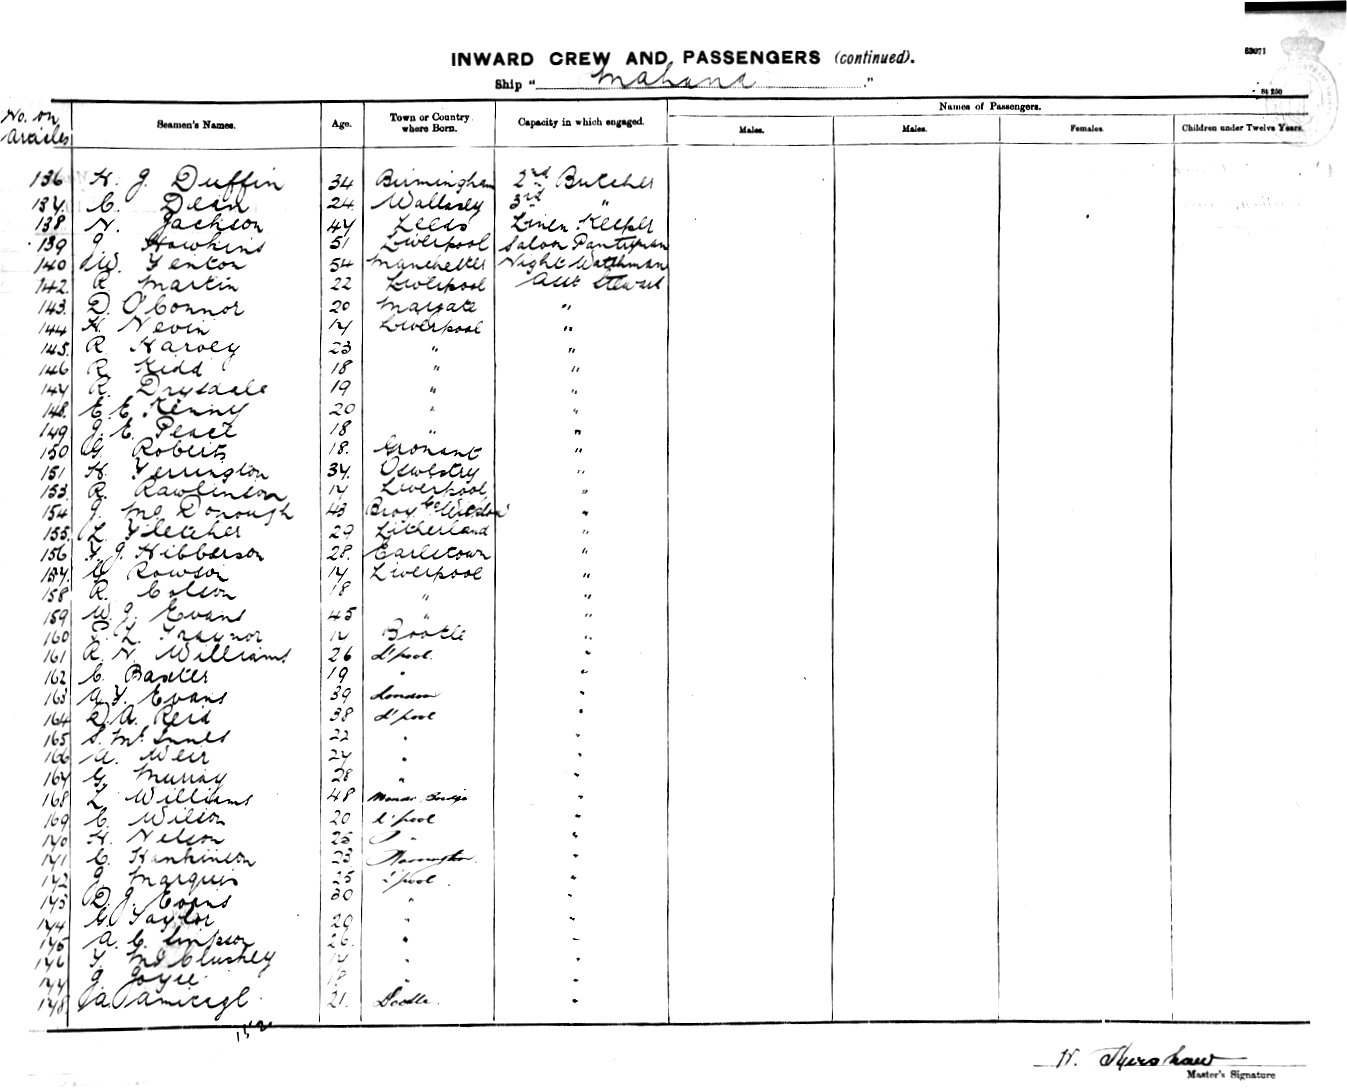 63071
INWARD CREW AND PASSENGERS (continued).
Ship " Mahana "
84 250
No. on Articles
Seamen's Names. Age. Town or Country where Born. Capacity in which engaged. Names of Passengers.
Males. Males. Females. Children under Twelve Years.
136 H. J. Duffin 34 Birmingham 2nd Butcher
137 C. Dean 24 Wallasey 3rd "
138 N. Jackson 47 Leeds Linen Keeper
139 J. Hawkins 51 Liverpool Saloon Pantryman
140 W. Fenton 54 Manchester Night Watchman
142 R. Martin 22 Liverpool Asst Steward
143 D. O'Connor 20 Margate "
144 H. Nevin 17 Liverpool "
145 R. Harvey 23 " "
146 R. Kidd 18 " "
147 R. Drysdale 19 " "
148 E. E. Kenny 20 " "
149 J. E. Peace 18 " "
150 G. Roberts 18 Gronant "
151 H. Ferrington 34 Oswestry "
153 R. Rawlinson 17 Liverpool "
154 J. McDonough 43 "
155 L. Fletcher 29 Litherland "
156 F. J. Hibberson 28 Earlestown "
157 C. Rowson 17 Liverpool "
158 R. Colson 18 " "
159 W. J. Evans 45 " "
160 L. Traynor 17 Bootle "
161 R. N. Williams 26 L'pool "
162 C. Baxter 19 " "
163 A. F. Evans 39 London "
164 D. A. Reid 38 L'pool "
165 S. McInnes 22 " "
166 A. Weir 27 " "
167 G. Murray 28 " "
168 L. Williams 48 "
169 C. Wilson 20 L'pool "
170 H. Nelson 25 " "
171 C. Hankinson 23 Warrington "
172 J. Marquis 25 L'pool "
173 D. J. Evans 30 " "
174 G. Taylor 29 " "
175 A. C. Simpson 26 " "
176 F. McCluskey 17 " "
177 J. Joyce 18 " "
178 A. 21 Bootle "
W. Kershaw
Master's Signature